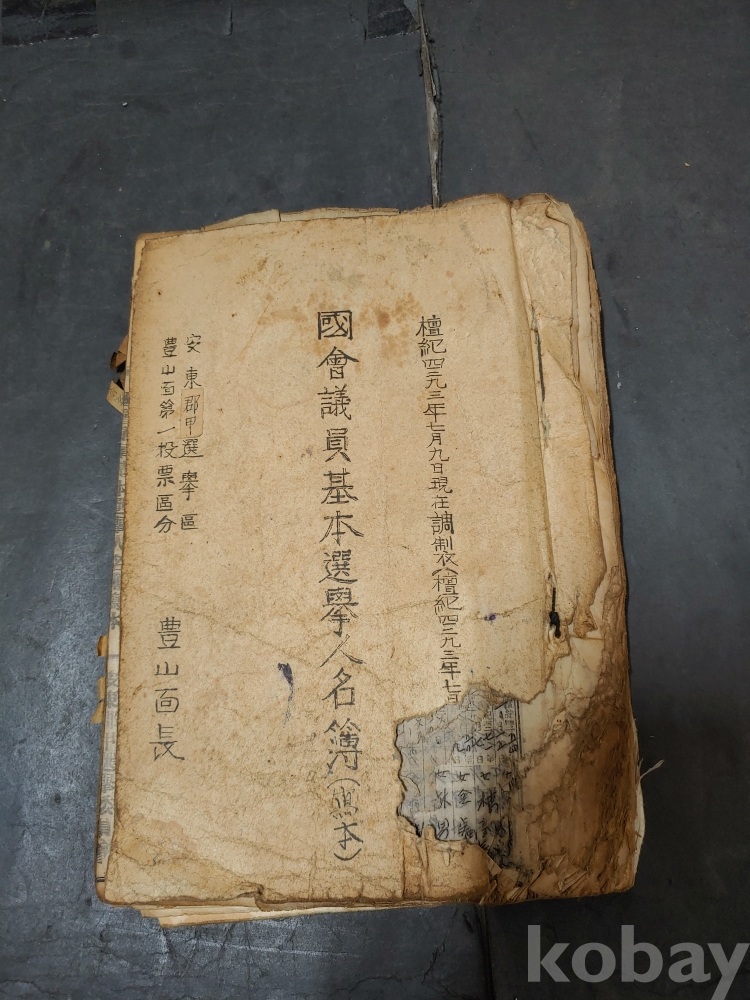 檀紀四二九三年七月九日現在調製衣(檀紀四二九三年七月
國會議員基本選擧人名簿(寫本)
安東郡甲選擧區
豊山面第一投票區分
豊山面長
kobay